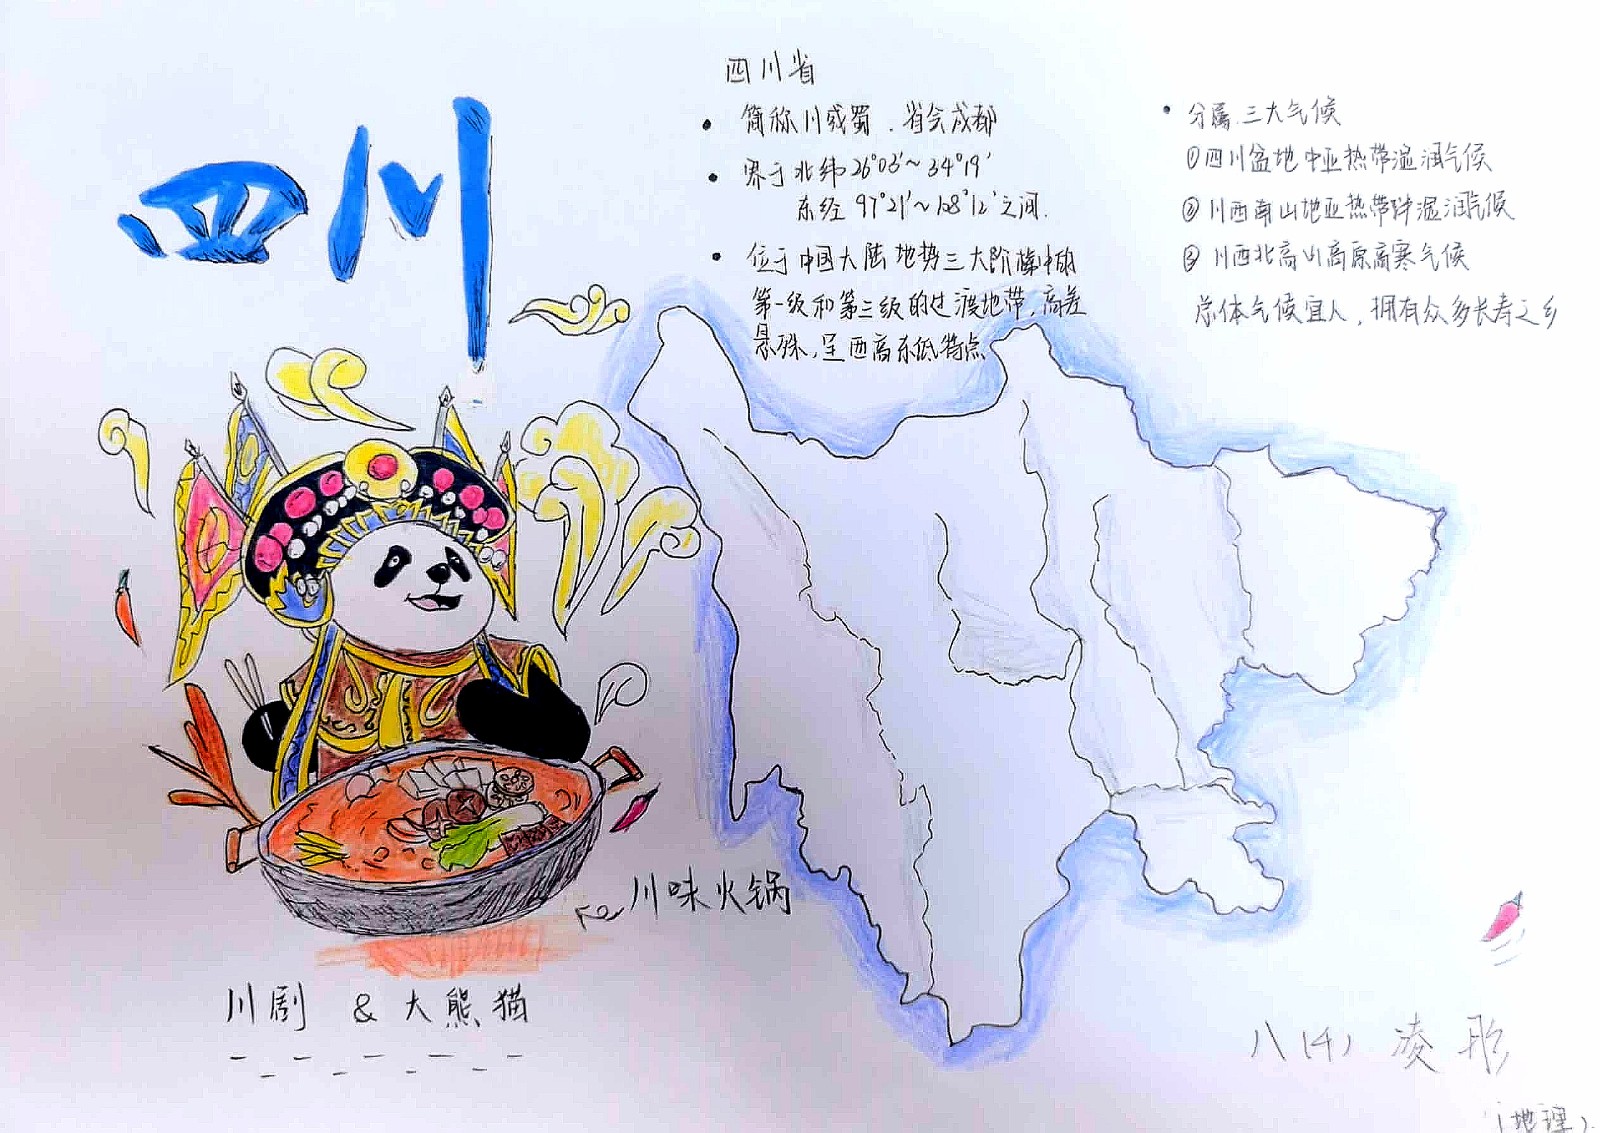 四川
四川省
• 简称川或蜀．省会成都
• 界于北纬26°03′~34°19′
东经97°21′~108°12′之间.
• 位于中国大陆地势三大阶梯中的
第一级和第三级的过渡地带，高差
悬殊，呈西高东低特点
• 分属三大气候
①四川盆地中亚热带湿润气候
②川西南山地亚热带半湿润气候
③川西北高山高原高寒气候
总体气候宜人，拥有众多长寿之乡
川味火锅
川剧 & 大熊猫
八(4) 凌彤
(地理).